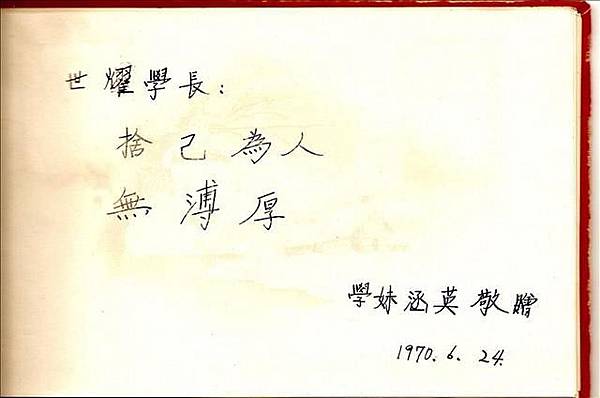 世耀學長：
捨己為人
無溥厚
學妹涵英敬贈
1970.6.24.